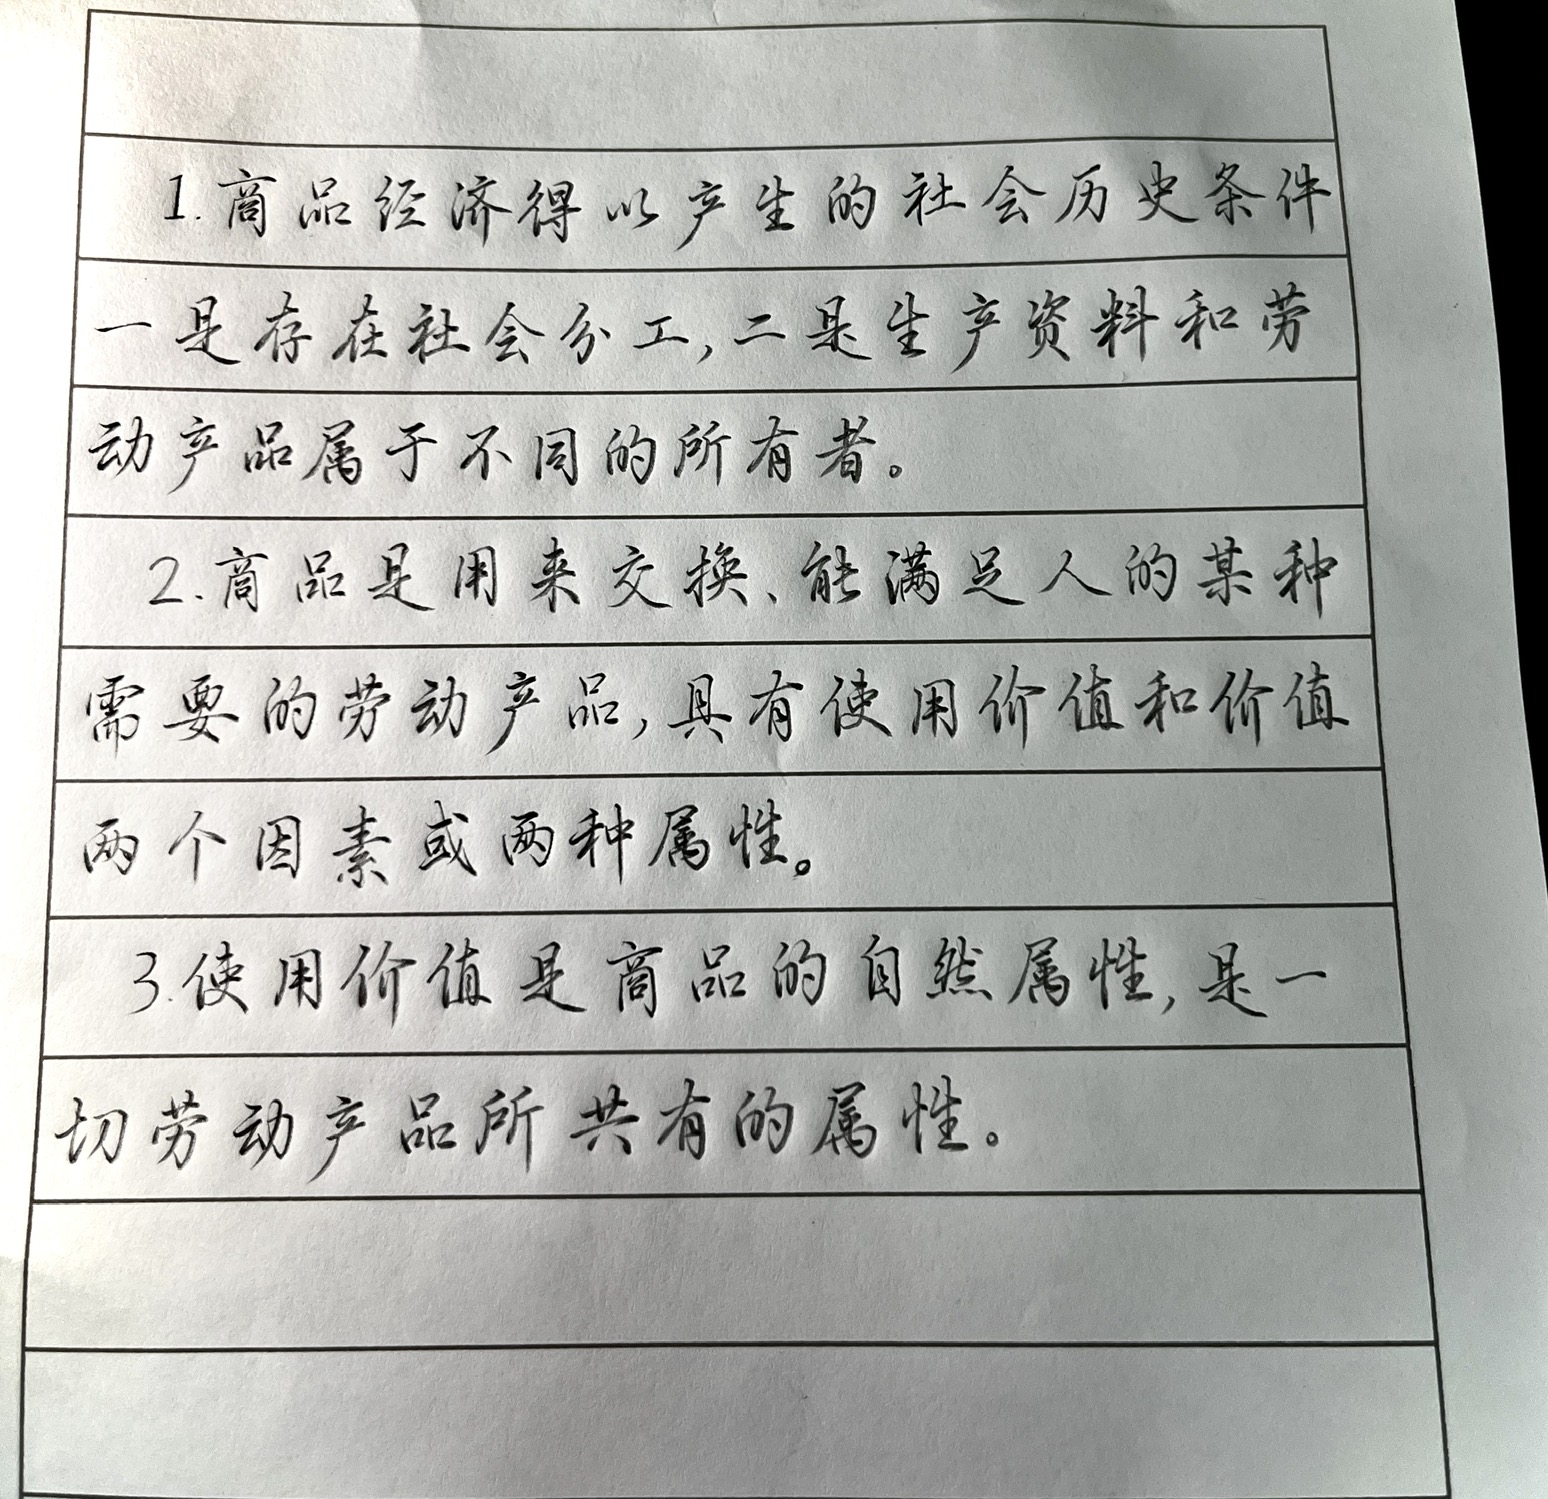 1.商品经济得以产生的社会历史条件
一是存在社会分工,二是生产资料和劳
动产品属于不同的所有者。
2.商品是用来交换、能满足人的某种
需要的劳动产品,具有使用价值和价值
两个因素或两种属性。
3.使用价值是商品的自然属性,是一
切劳动产品所共有的属性。